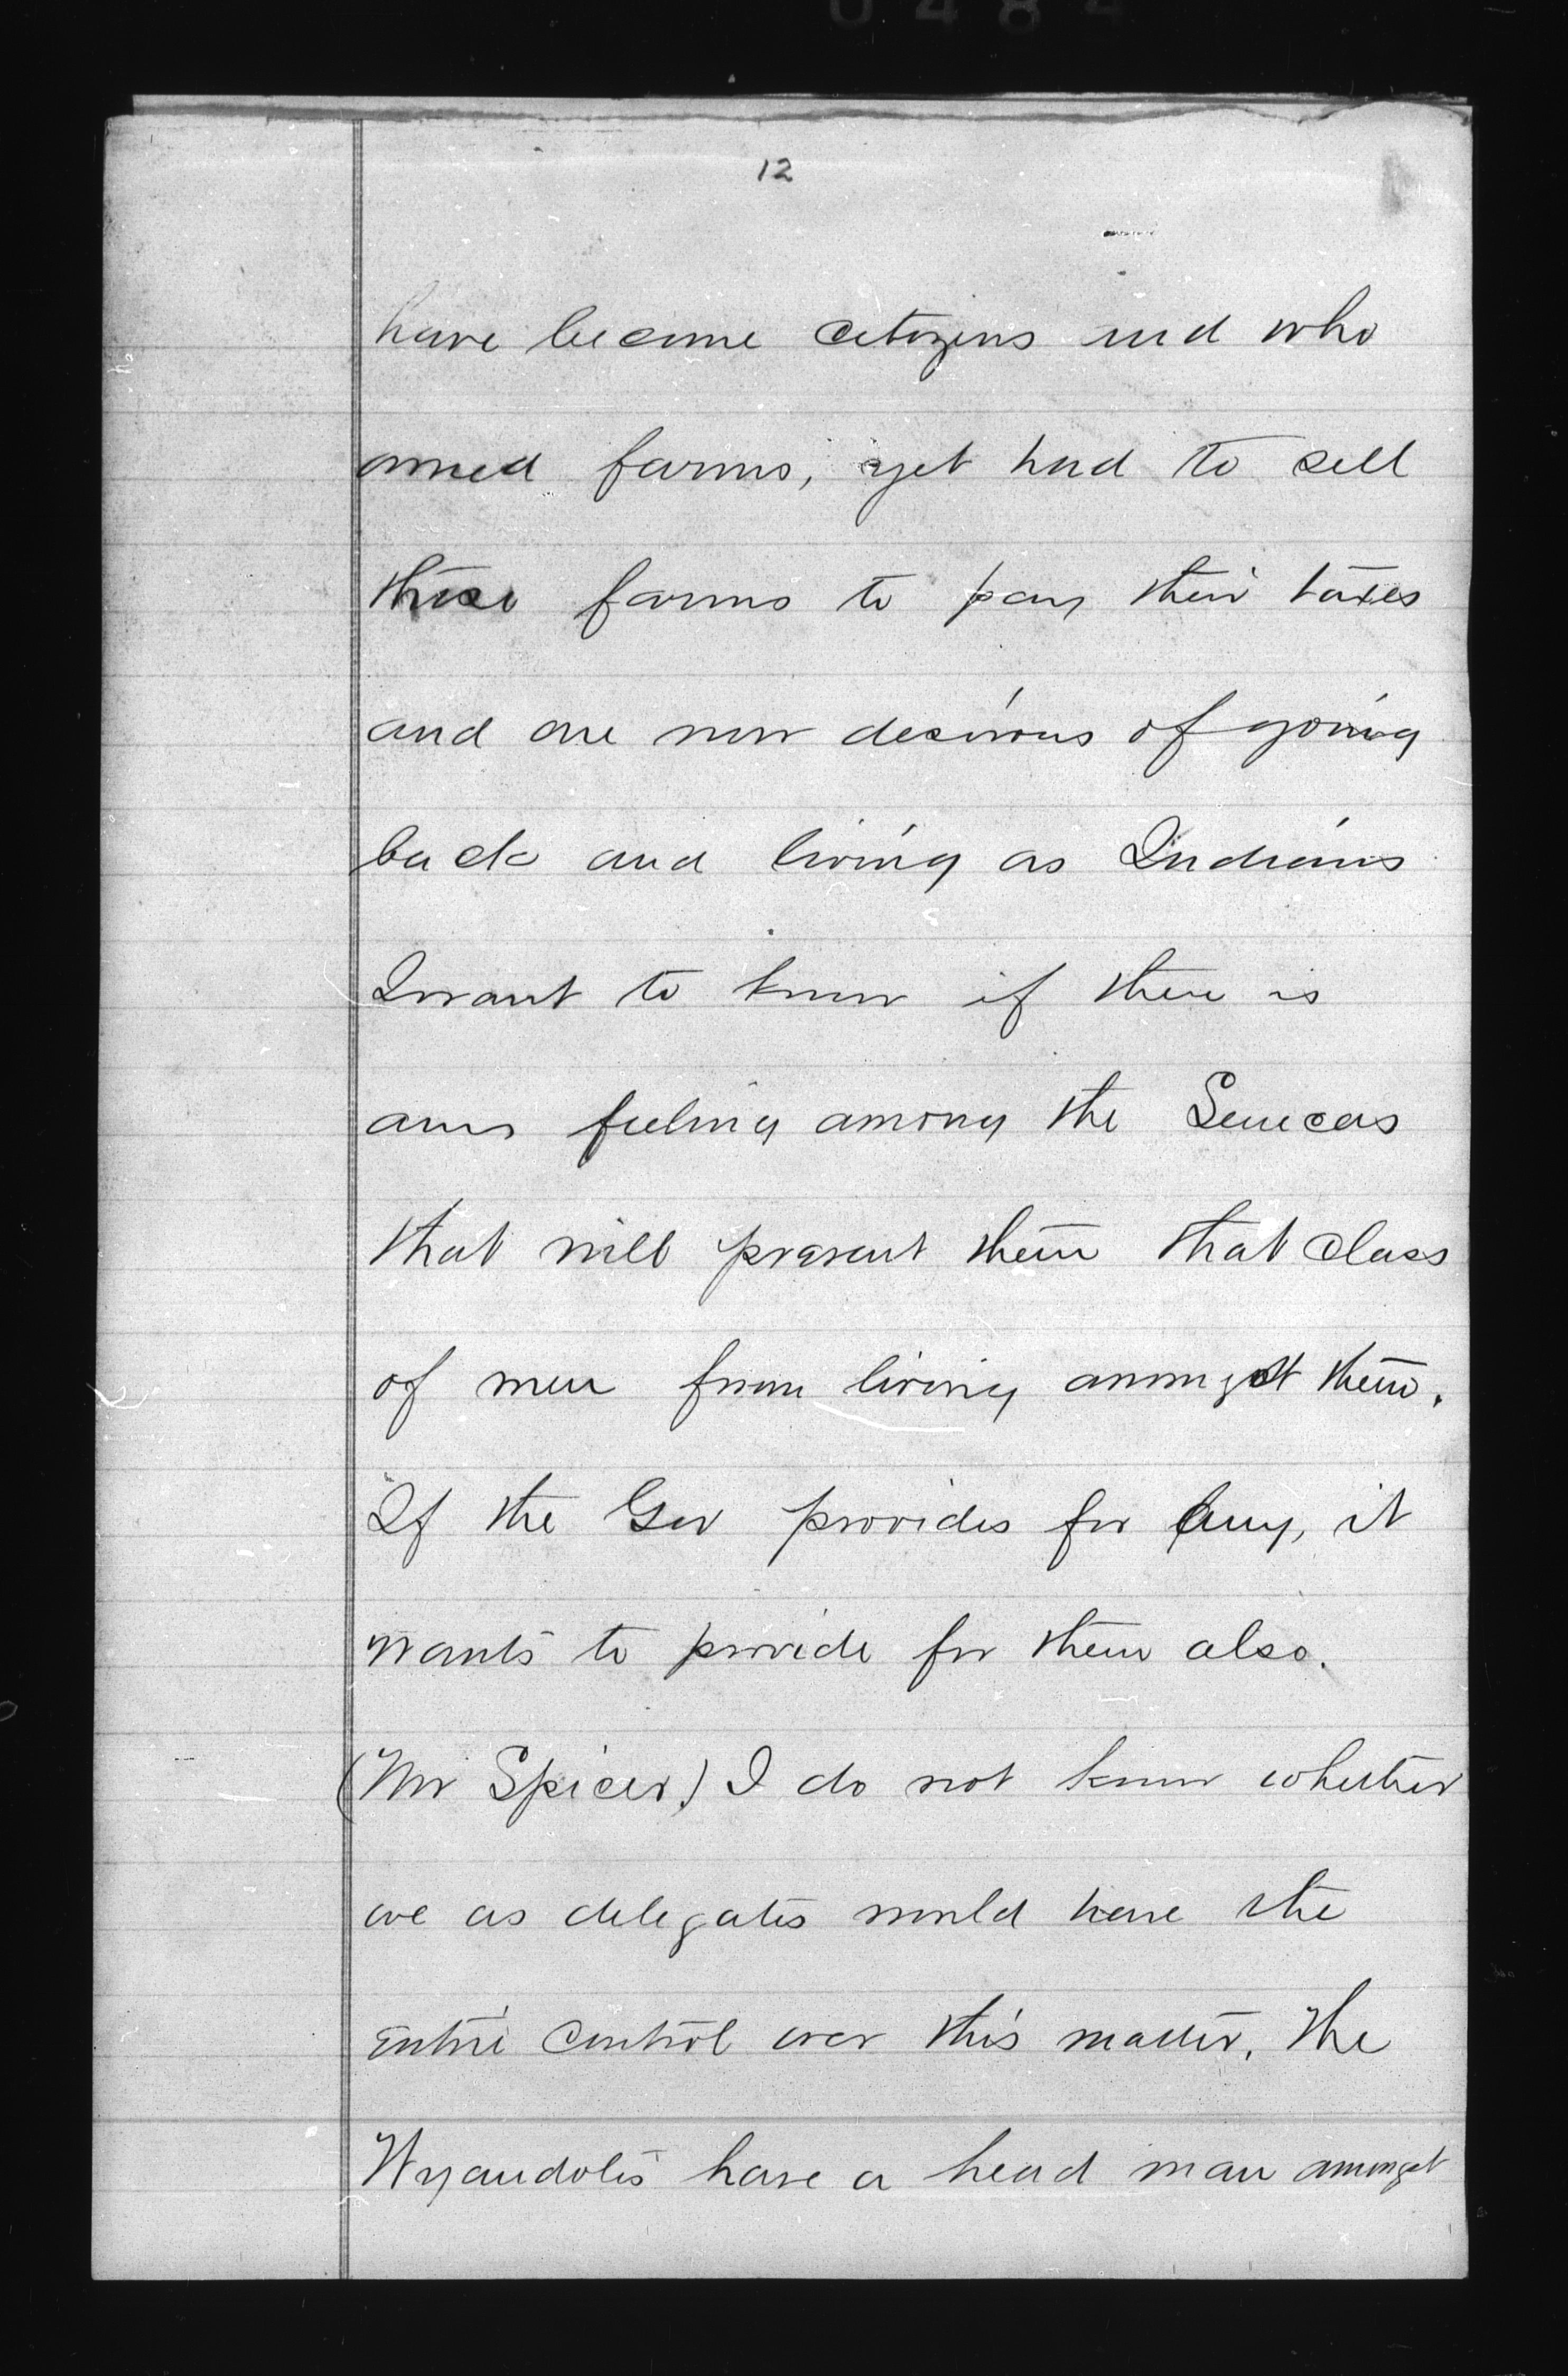 0484
12
have become citizens and who
owned farms, yet had to sell
these farms to pay their taxes
and are now desirous of going
back and living as Indians
I want to know if there is
any feeling among the Senecas
that will prevent them that class
of men from living amongst them.
If the Gov provides for any, it
wants to provide for them also.
(Mr Spicer.) I do not know whether
we as delegates would have the
entire control over this matter. The
Wyandotes have a head man amongst